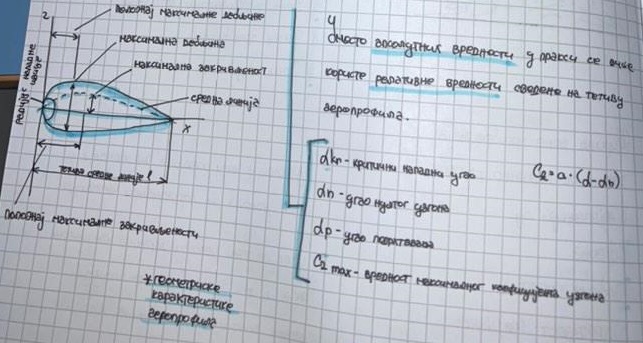 z
положај максималне дебљине
максимална дебљина
максимална закривљеност
средња линија
x
радијус нападне
ивице
тетива средње линије l
положај максималне закривљености
*геометриске
карактеристике
аеропрофила
уместо апсолутних вредности у пракси се више
користе релативне вредности сведене на тетиву
аеропрофила.
αkn - критични нападни угао
Cz = a · (α - αn)
αn - угао нултог узгона
αp - угао
Cz max - вредност максималног коефицијента узгона